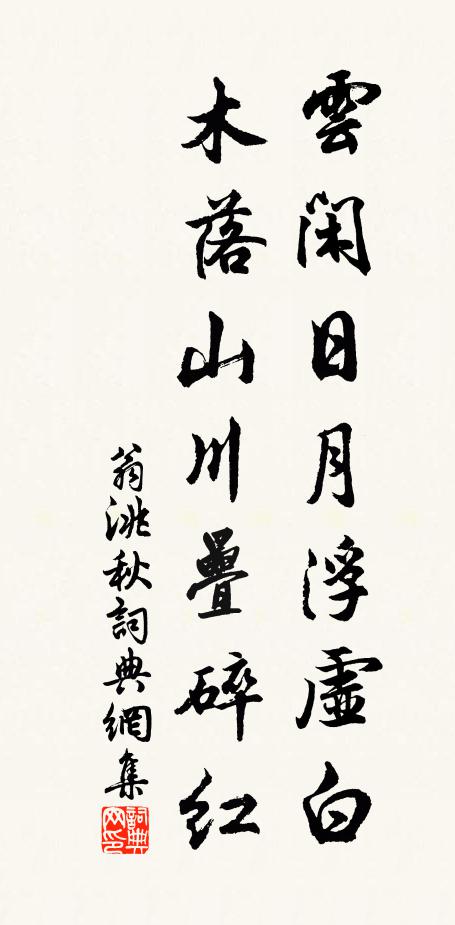 雲閑日月浮虛白
木落山川疊碎紅
翁洮秋詞典網集
詞典網印